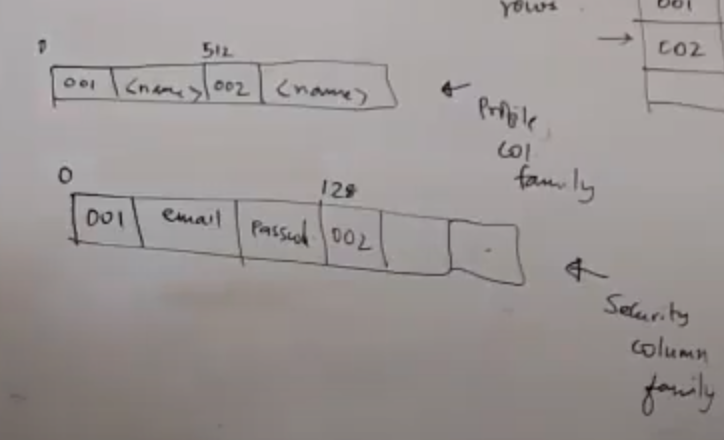 rows
001
→ C02
0 512
001 <name> 002 <name>
← Profile
col
family
0 128
001 email Passwd 002 .
← Security
column
family